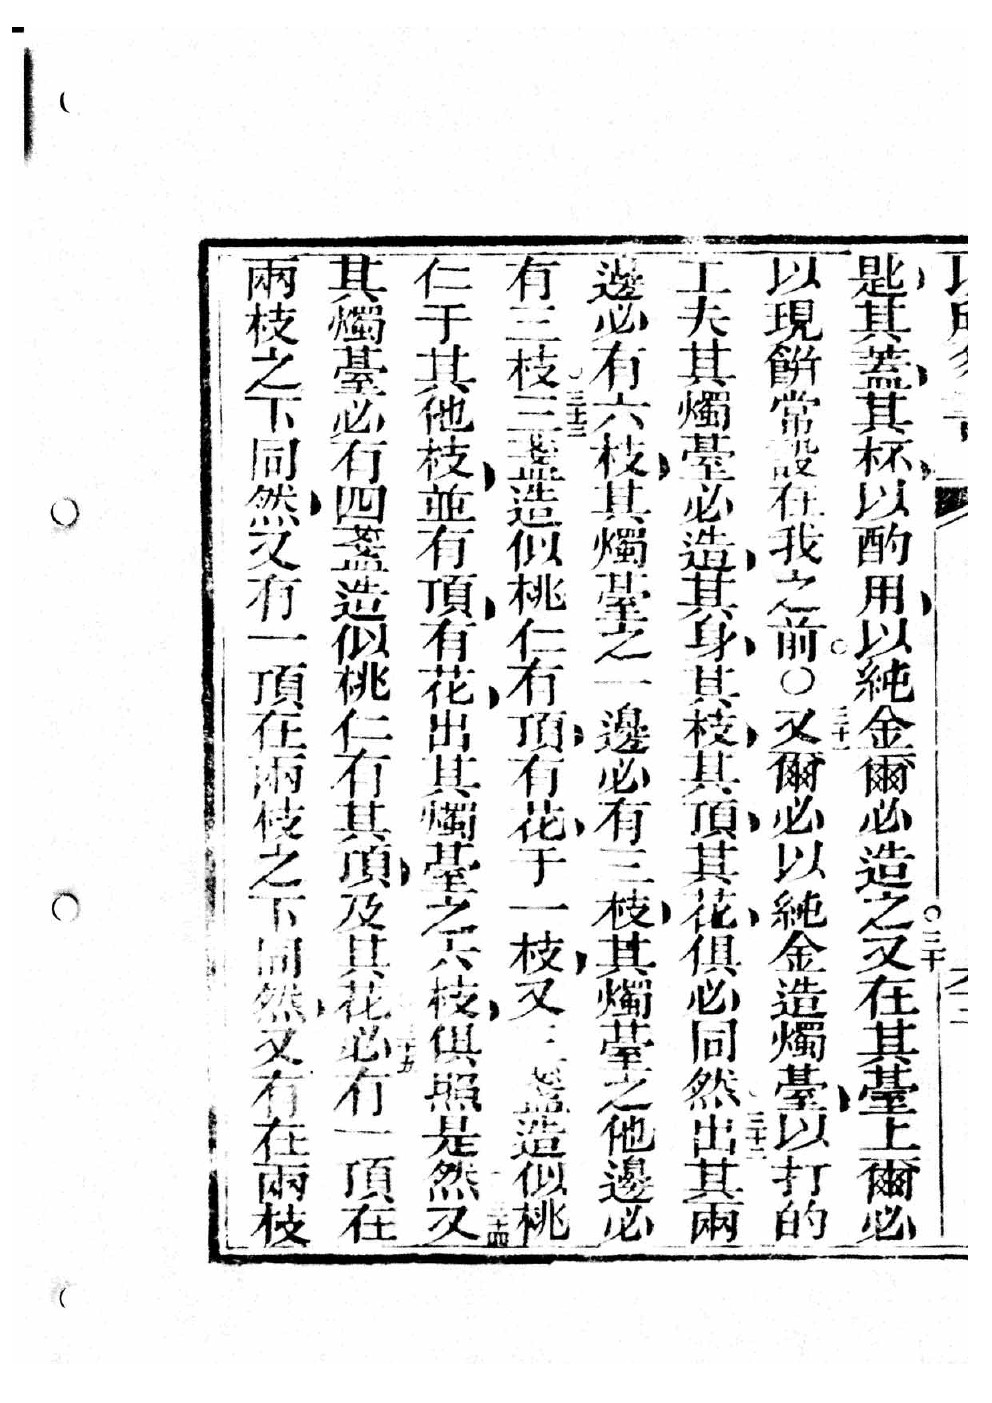 匙其蓋其杯以酌用以純金爾必造之○三十又在其臺上爾必
以現餅常設在我之前○三十一又爾必以純金造燭臺以打的
工夫其燭臺必造其身其枝其頂其花俱必同然三十二出其兩
邊必有六枝其燭臺之一邊必有三枝其燭臺之他邊必
有三枝三十三三盞造似桃仁有頂有花于一枝又三盞造似桃
仁于其他枝並有頂有花出其燭臺之六枝俱照是然三十四又
其燭臺必有四盞造似桃仁有其頂及其花三十五必有一頂在
兩枝之下同然又有一頂在兩枝之下同然又有在兩枝